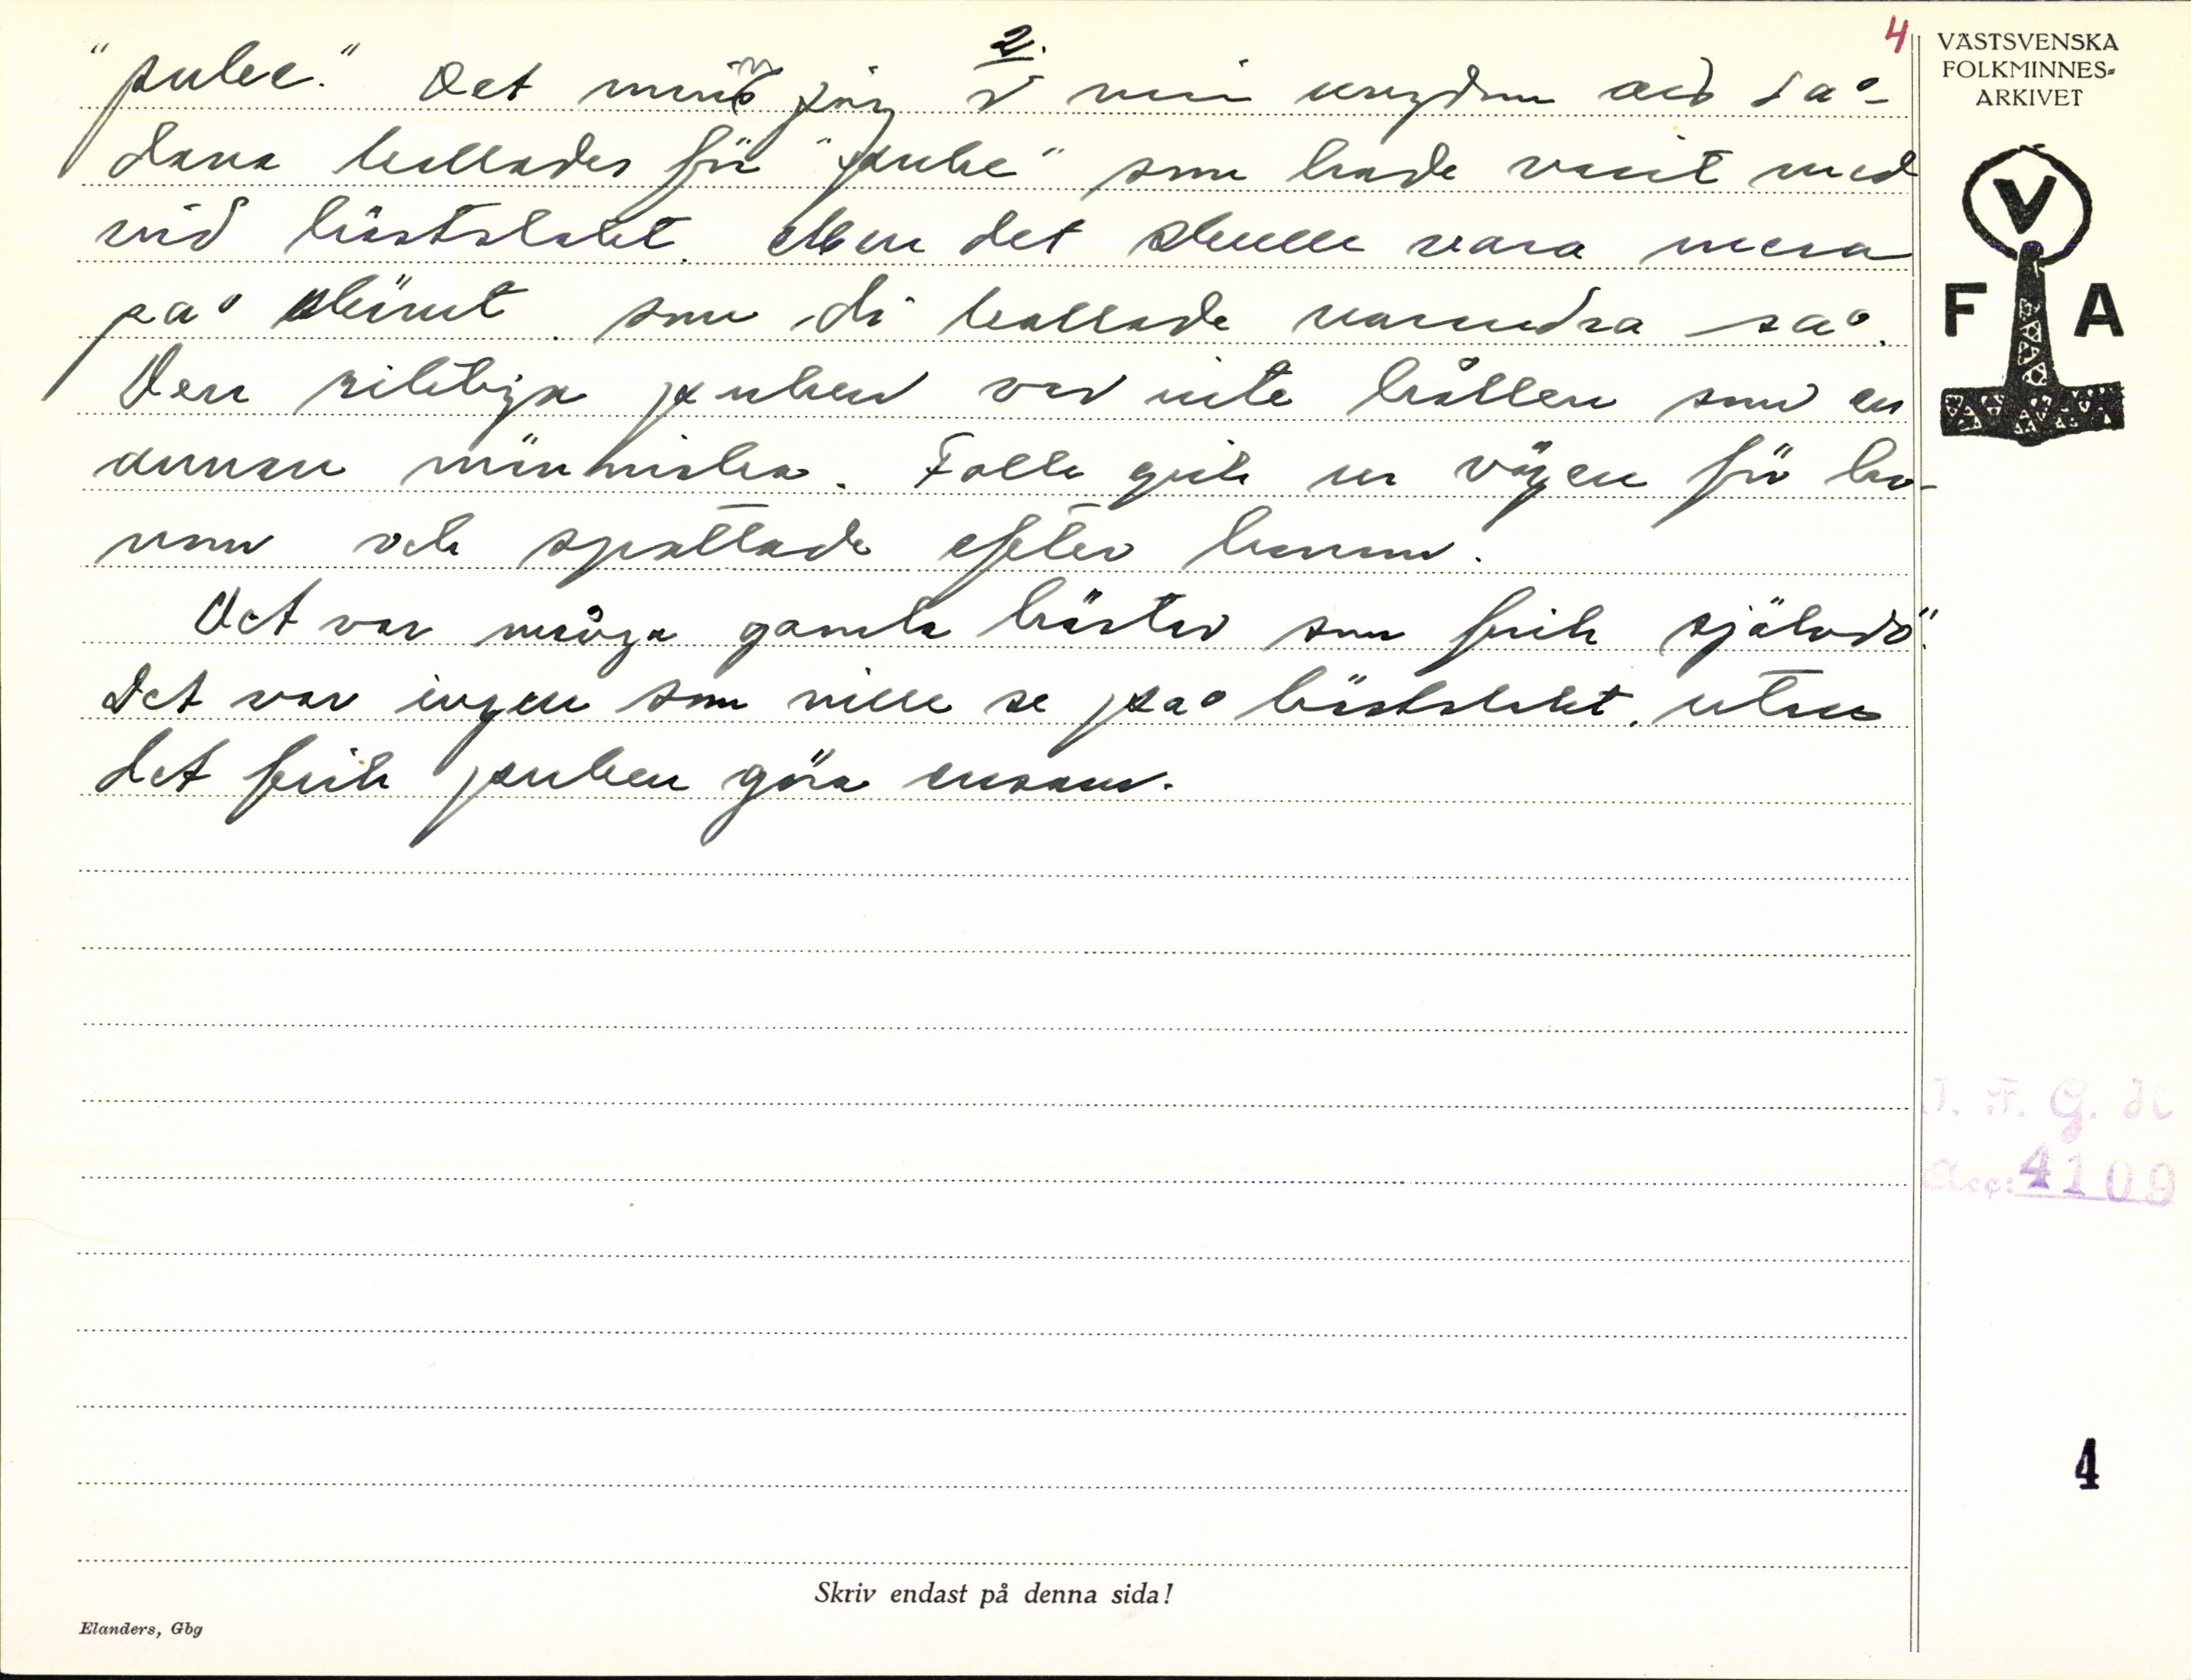 2.
4
"puke." Det minns jag i min ungdom att så-
dana kallades för "puke" som hade varit med
vid hästslakt. Men det skulle vara mera
på skämt som di kallade varandra så.
Den riktiga puken var inte hållen som en
annan människa. Folk gick ur vägen för ho-
nom och spottade efter honom.
Det var många gamla hästar som fick självdö".
Det var ingen som ville se på hästslakt, utan
det fick puken göra ensam.
Skriv endast på denna sida!
Elanders, Gbg
VÄSTSVENSKA
FOLKMINNES-
ARKIVET
V
F A
I. F. G. H
Acc: 4109
4